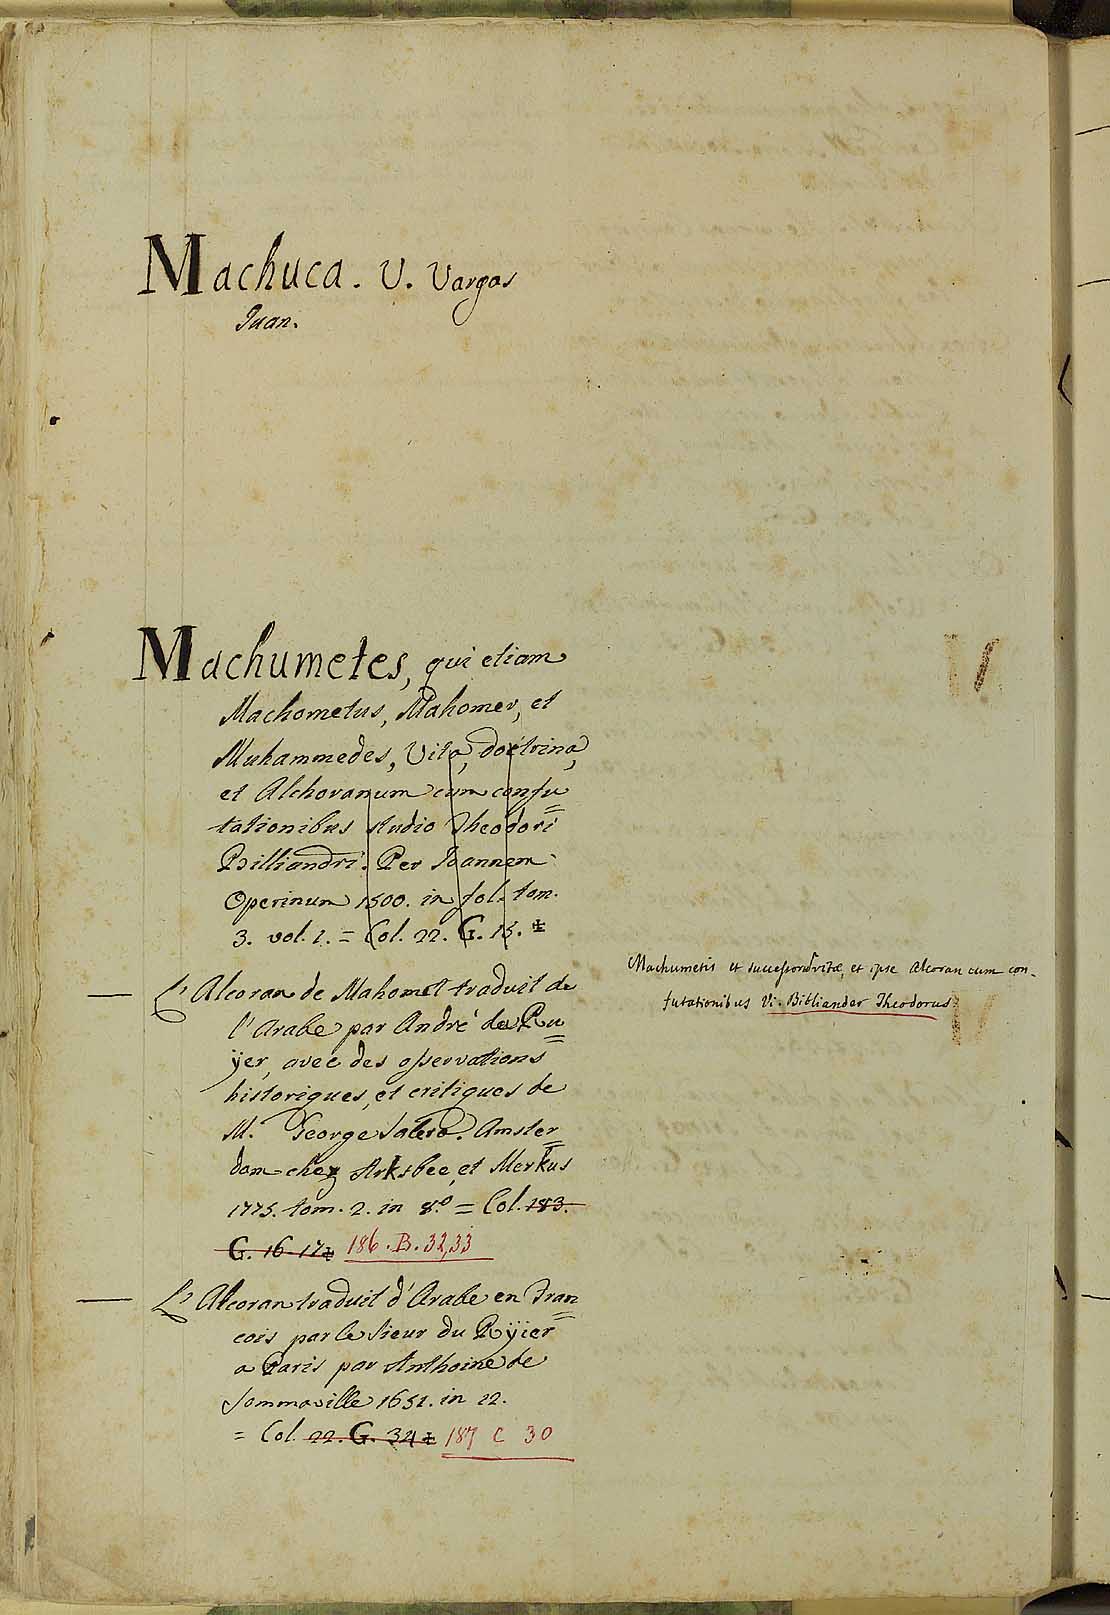 Machuca. V. Vargas
Juan.
Machumetes, qui etiam
Machometus, Mahomev, et
Muhammedes, Vita, doctrina,
et Alchoranum cum confu=
tationibus studio Theodori
Billiandri. Per Joannem
Operinum 1500. in fol. tom.
3. vol. 1. = Col. 22. G. 15.
L' Alcoran de Mahomet traduit de
l' Arabe par André du Ru=
ÿer, avec des osservations
historiques, et critiques de
M. George Salero. Amster=
dam chez Arksbee, et Merkus
1775. tom. 2. in 8.o = Col. 183.
G. 16-17 186. B. 32,33
L' Alcoran traduit d' Arabe en Fran=
cois par le Sieur du Rÿier
a Paris par Anthoine de
Sommaville 1651. in 12.
= Col. 22. G. 34 187 C 30
Machumetis et successorũ vitæ, et ipse Alcoran cum con-
futationibus Vi. Bibliander Theodorus